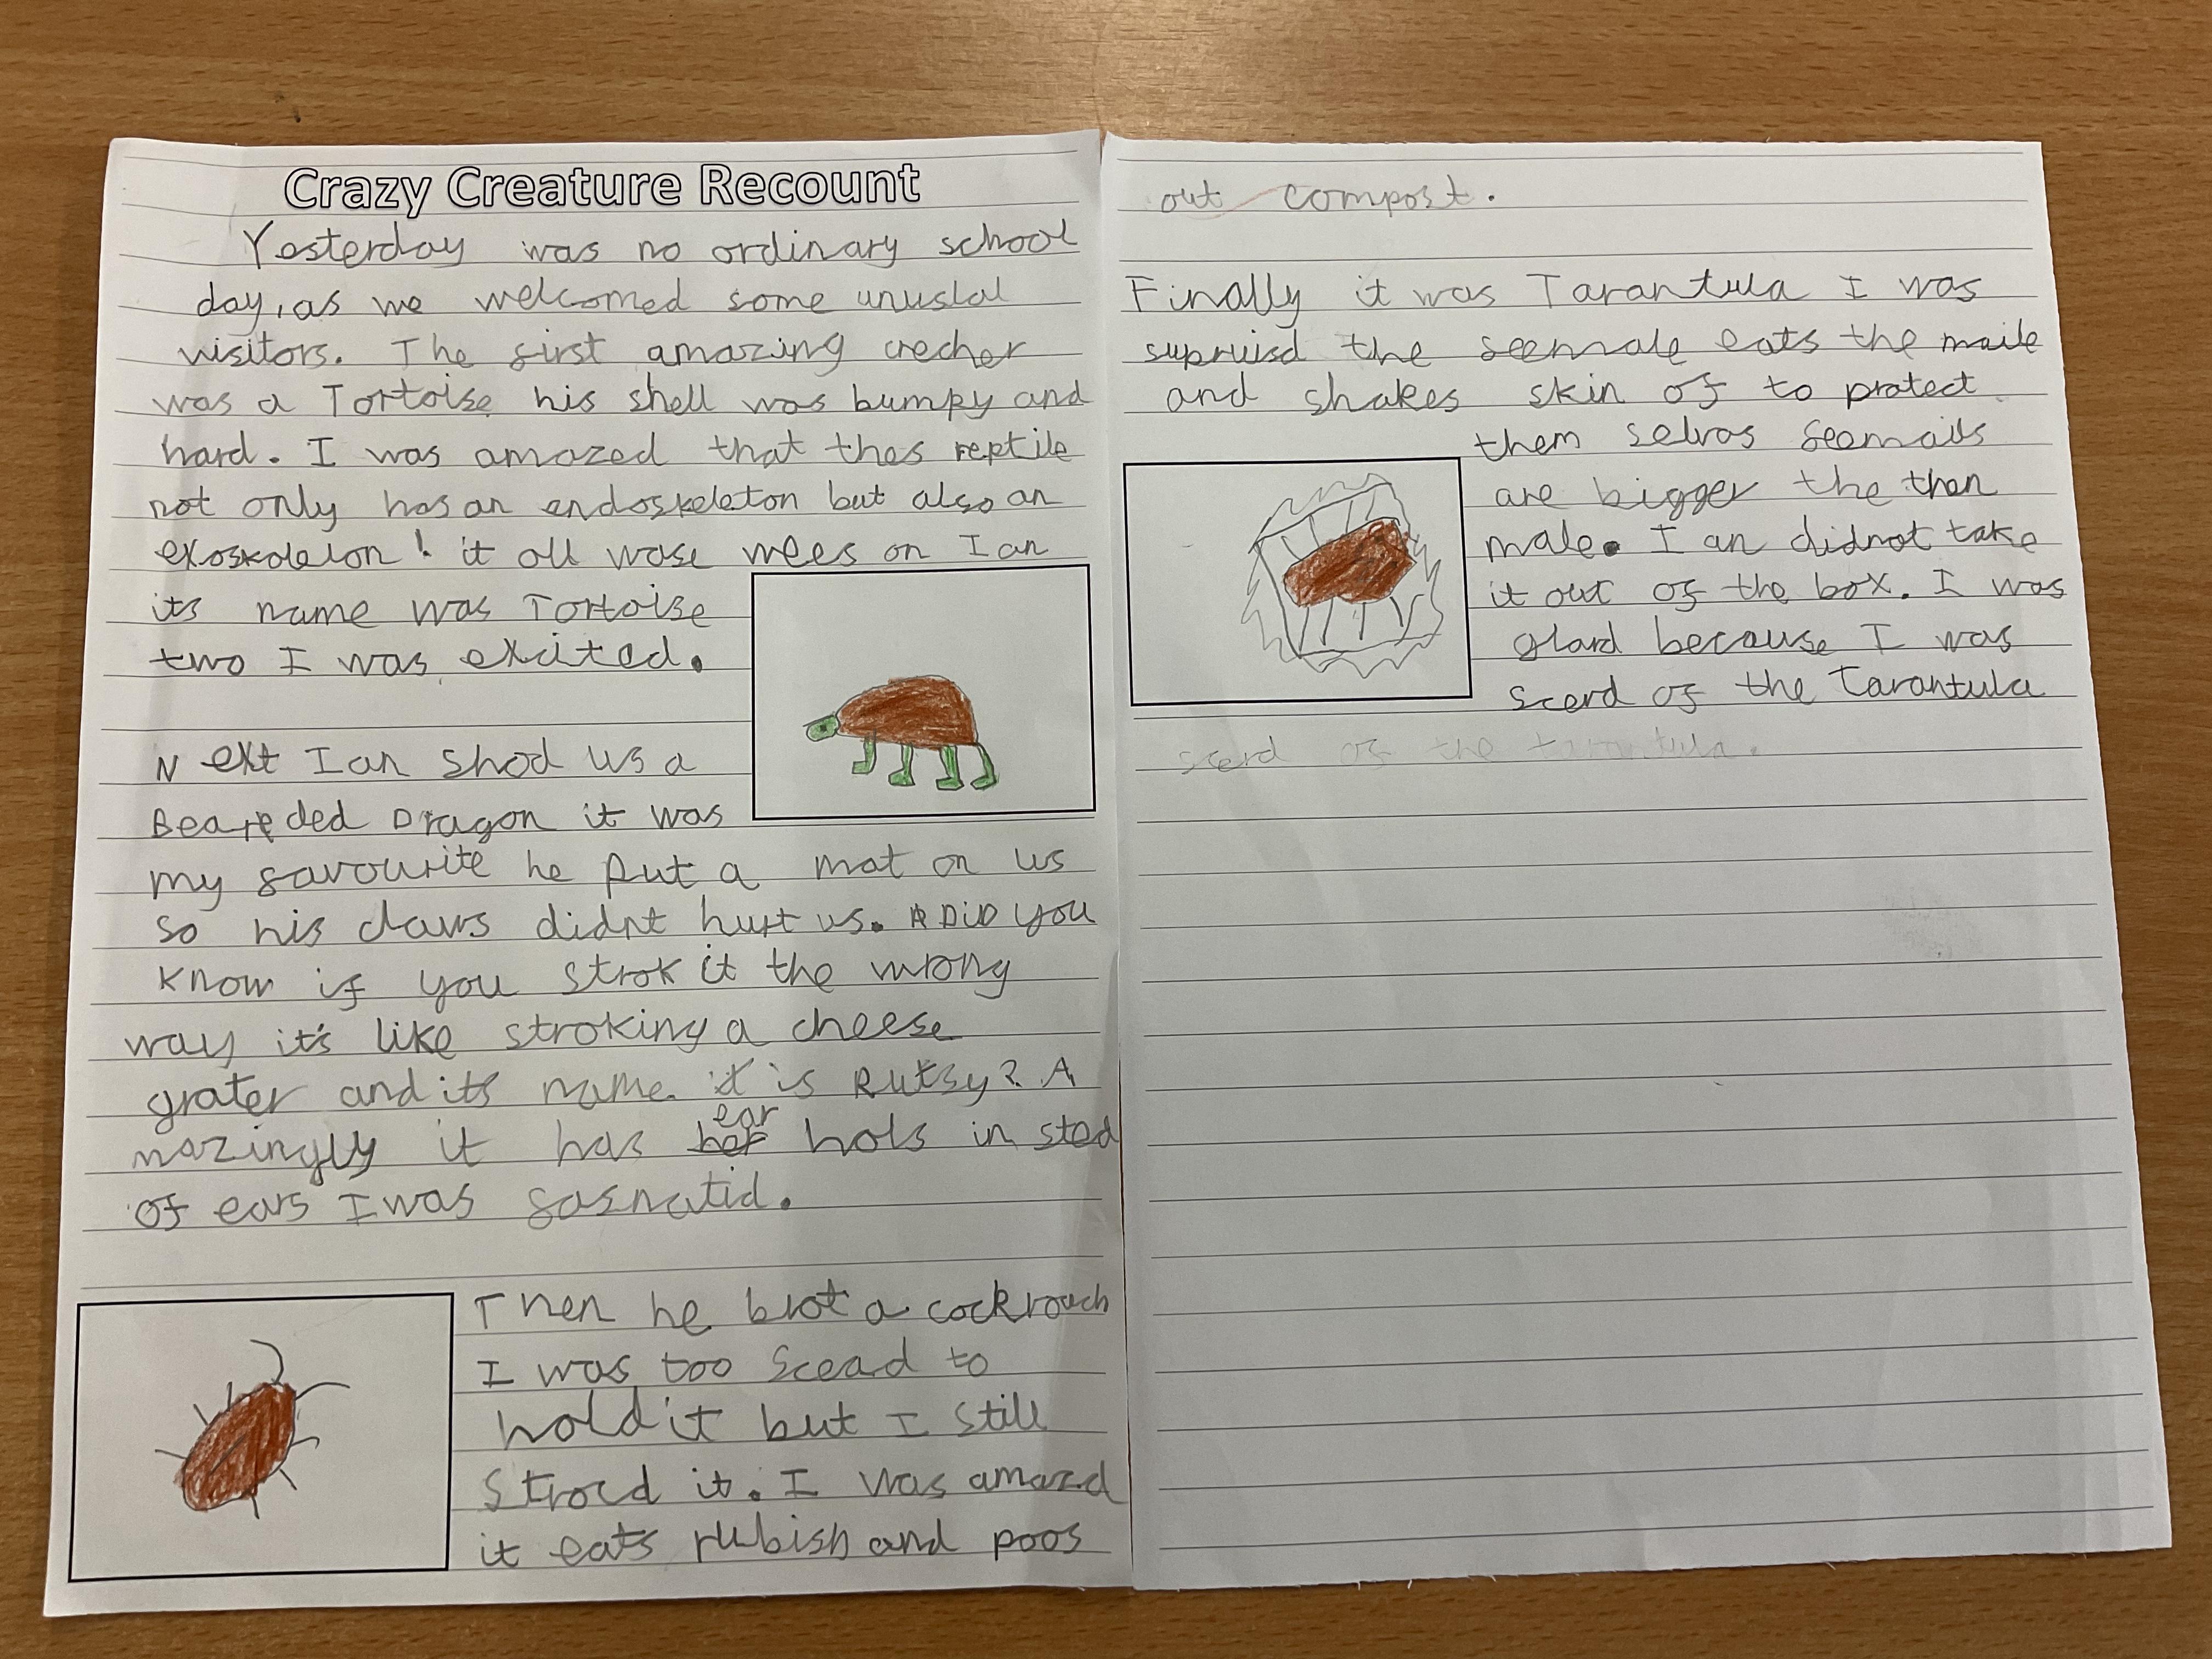 Crazy Creature Recount
Yesterday was no ordinary school
day, as we welcomed some unuslal
visitors. The first amazing crecher
was a Tortoise his shell was bumpy and
hard. I was amazed that thes reptile
not only has an endoskeleton but also an
exoskoleton! it oll wose wees on Ian
its name was Tortoise
two I was excited.
Next Ian shod us a
Bearded Dragon it was
my favourite he put a mat on us
so his claws didnt hurt us. DiD you
know if you strok it the wrong
way it's like stroking a cheese
grater and it's name it is Rutsy? A
mazingly it has ear hols in sted
of ears I was fasnatid.
Then he brot a cockroach
I was too scead to
hold it but I still
stroed it. I was amazd
it eats rubish and poos
out compost.
Finally it was Tarantula I was
supruisd the feemale eats the maile
and shakes skin of to protect
them selvas feemails
are bigger the then
male. I an didnot take
it out of the box. I was
glard because I was
scerd of the Tarantula
scerd of the tarantula.